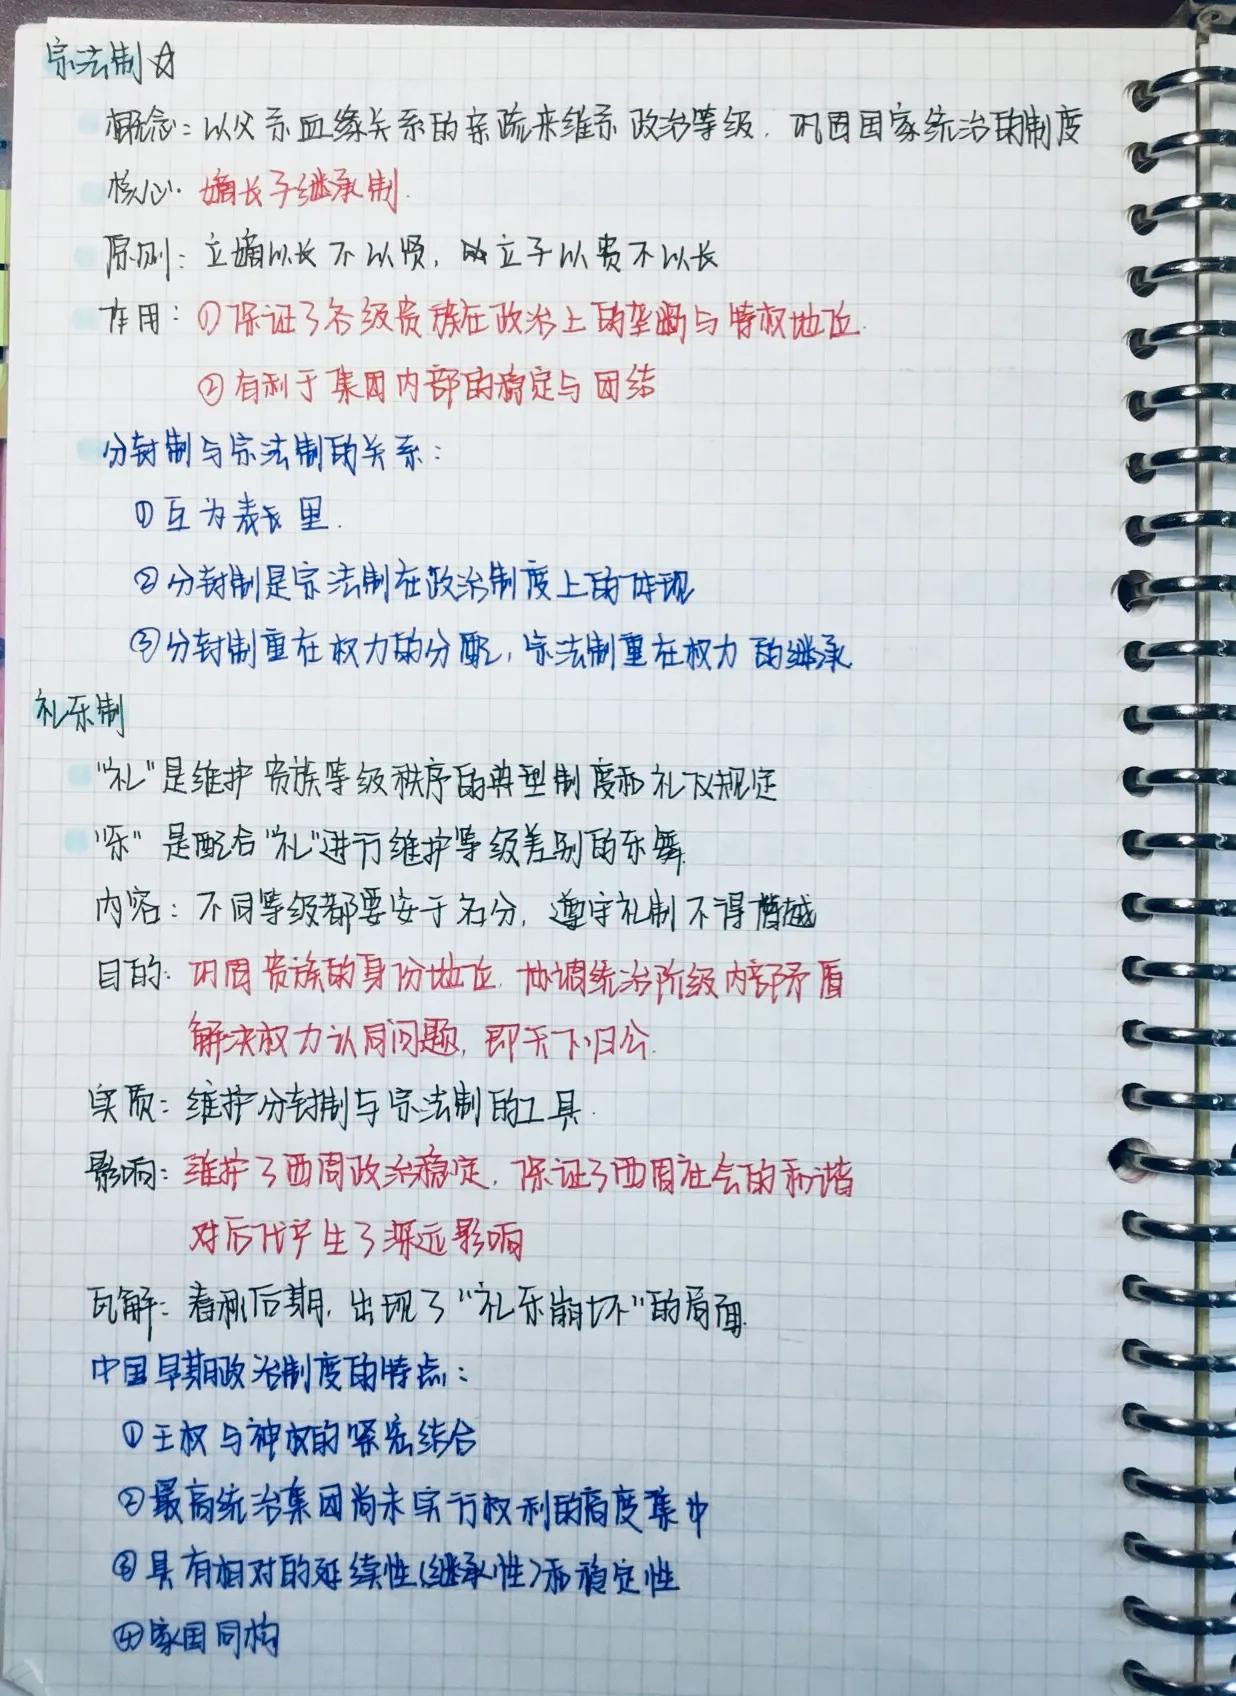 宗法制☆
概念：以父系血缘关系的亲疏来维系政治等级．巩固国家统治的制度
核心．嫡长子继承制．
原则：立嫡以长不以贤，立子以贵不以长
作用：①保证了各级贵族在政治上的垄断与特权地位．
②有利于集团内部的稳定与团结
分封制与宗法制的关系：
①互为表里．
②分封制是宗法制在政治制度上的体现
③分封制重在权力的分配，宗法制重在权力的继承
礼乐制
“礼”是维护贵族等级秩序的典型制度和礼仪规定
“乐”是配合“礼”进行维护等级差别的乐舞．
内容：不同等级都要安于名分，遵守礼制不得僭越
目的：巩固贵族的身份地位．协调统治阶级内部矛盾
解决权力认同问题，即天下归公．
实质：维护分封制与宗法制的工具．
影响：维护了西周政治稳定．保证了西周社会的和谐
对后代产生了深远影响
瓦解：春秋后期，出现了“礼乐崩坏”的局面．
中国早期政治制度的特点：
①王权与神权的紧密结合
②最高统治集团尚未实行权利的高度集中
③具有相对的延续性（继承性）和稳定性
④家国同构